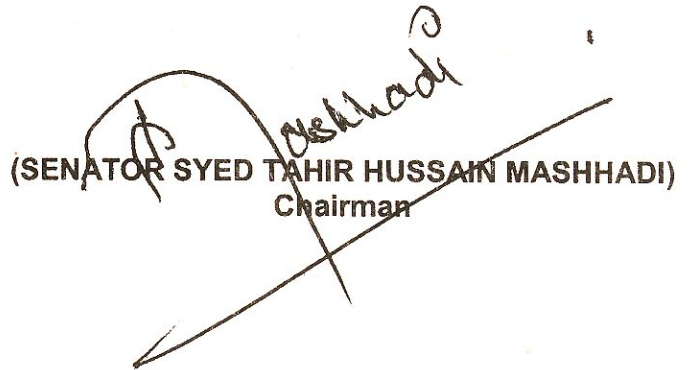 Mashhadi
(SENATOR SYED TAHIR HUSSAIN MASHHADI)
Chairman